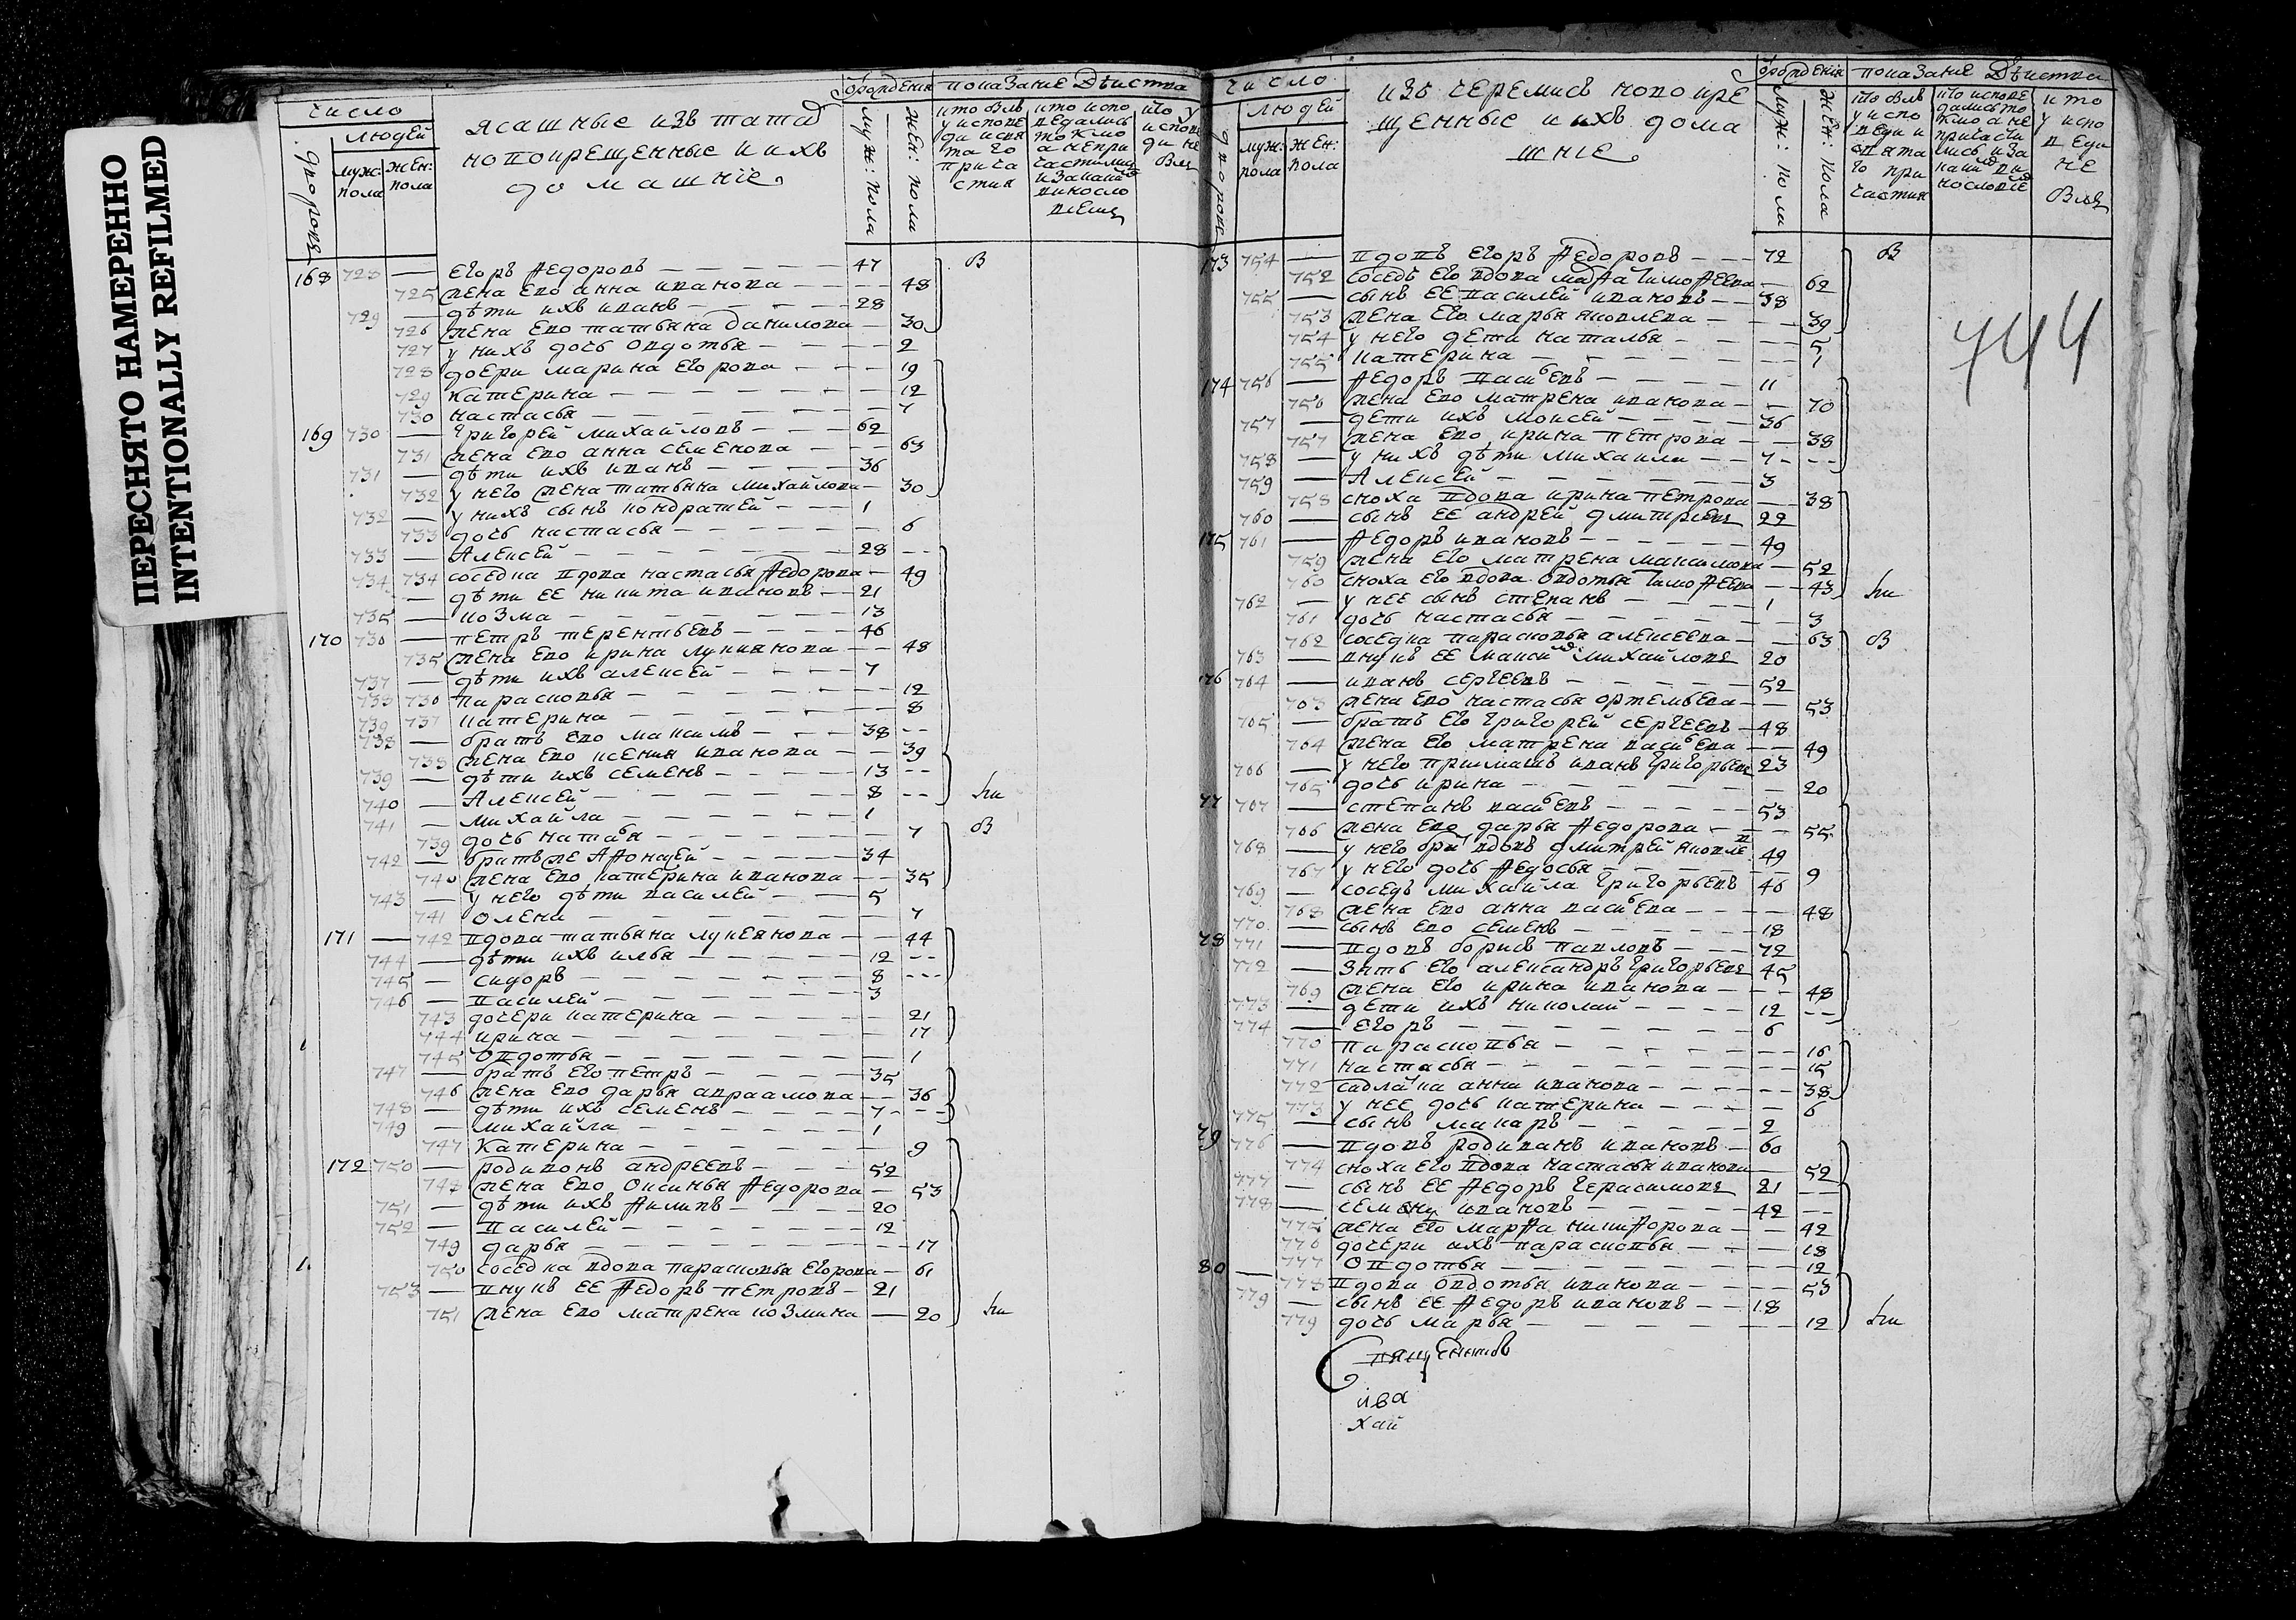 ПЕРЕСНЯТО НАМЕРЕННО
INTENTIONALLY REFILMED
число
людей
дворовъ
муж: пола
жен: пола
ясашные изъ татаръ
новокрещенные и ихъ
домашніе
отрожденія
муж: пола
жен: пола
показание действа
168 728 — Егоръ Федоровъ 47 В
725 жена ево анна иванова 48
729 — дѣти ихъ иванъ 28
726 жена ево татьяна данилова 30
727 у нихъ дочь овдотья 2
728 дочери марина Егорова 19
729 катерина 12
730 настасья 7
169 730 — григорей михайловъ 62
731 жена ево анна семенова 63
731 — дѣти ихъ иванъ 36
732 у него жена татьяна михайлова 30
732 — у нихъ сынъ кондратей 1
733 дочь настасья 6
733 — Алексей 28
734 734 соседка вдова настасья федорова 49
— дѣти ее никита ивановъ 21
735 — козма 13
170 736 — петръ терентьевъ 46
735 жена ево ирина лукиянова 48
737 — дѣти ихъ алексей 7
736 парасковья 12
737 катерина 8
738 — братъ ево максимъ 38
738 жена ево ксения иванова 39
739 — дѣти ихъ семенъ 13
740 — Алексей 8
741 — михайла 1
739 дочь наталья 7 В
742 — братъ же Афонасей 34
740 жена ево катерина иванова 35
743 — у него дѣти василей 5
741 олена 7
171 — 742 вдова татьяна лукеянова 44
744 — дѣти ихъ илья 12
745 — сидоръ 8
746 — василей 3
743 дочери катерина 21
744 ирина 17
745 овдотья 1
747 — братъ его петръ 35
746 жена ево дарья авраамова 36
748 — дѣти ихъ семенъ 7
749 — михайла 1
747 катерина 9
172 750 — родивонъ андреевъ 52
748 жена ево оксинья федорова 53
751 — дѣти ихъ филипъ 20
752 — василей 12
749 дарья 17
750 соседка вдова парасковья егорова 61
753 — внукъ ее федоръ петровъ 21
751 жена ево матрена козмина 20
число
людей
дворовъ
муж: пола
жен: пола
изъ черемисъ новокре
щенные и ихъ дома
шніе
муж: пола
жен: пола
показание действа
744
173 754 — вдовъ егоръ федоровъ 72 В
752 соседъ его вдова марфа тимофеева 62
755 — сынъ ее василей ивановъ 38
753 жена его марья яковлева 39
754 у него дети наталья 5
755 катерина 1
174 756 — федоръ васильевъ 11
756 жена ево матрена иванова 70
757 — дети ихъ моисей 36
757 жена ево ирина петрова 38
758 — у нихъ дѣти михаила 7
759 — Алексей 3
758 сноха вдова ирина петрова 38
760 — сынъ ее андрей дмитриевъ 22
175 761 — федоръ ивановъ 49
759 жена его матрена максимова 52
760 сноха его вдова овдотья тимофеева 43
762 — у нее сынъ степанъ 1
761 дочь настасья 3
762 соседка парасковья алексеева 63 В
763 — внукъ ее максимъ михайловъ 20
176 764 — иванъ сергеевъ 52
763 жена ево настасья ортемьева 53
765 — братъ его григорей сергеевъ 48
764 жена его матрена васильева 49
766 — у него приимашъ иванъ григорьевъ 23
765 дочь ирина 20
77 767 — степанъ васильевъ 53
766 жена ево дарья федорова 55
768 — у него братъ вдовъ дмитрей яковлевъ 49
767 у него дочь федосья 9
769 — соседъ михайла григорьевъ 46
768 жена ево анна васильева 48
770 — сынъ ево семенъ 18
78 771 — вдовъ борисъ павловъ 72
772 — зять его александръ григорьевъ 45
769 жена его ирина иванова 48
773 — дети ихъ николай 12
774 — егоръ 6
770 парасковья 16
771 настасья 15
772 анна иванова 38
773 у нее дочь катерина 6
775 — сынъ макаръ 2
79 776 — вдовъ родиванъ ивановъ 60
774 сноха его вдова настасья иванова 52
777 — сынъ ее федоръ герасимовъ 21
778 — ивановъ 42
775 жена его марфа никифорова 42
776 дочери ихъ парасковья 18
777 овдотья 12
80 — 778 вдова овдотья иванова 53
779 — сынъ ее федоръ ивановъ 18
779 дочь марья 12
Священникъ
ива
хай